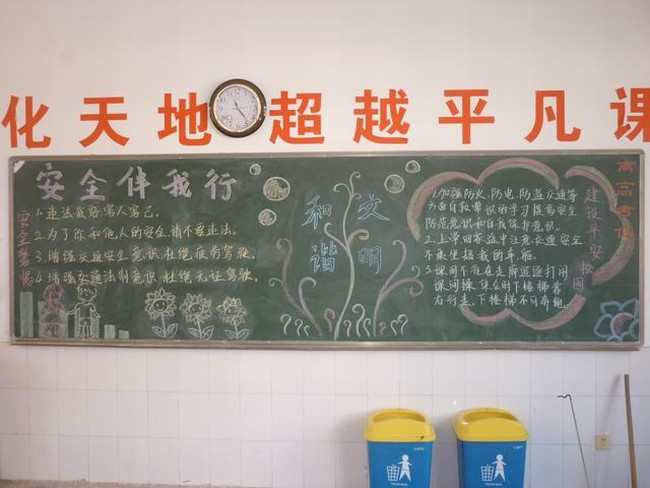 化天地 超越平凡课
安全伴我行
安全警惕
1.违法驾驶害人害己。
2.为了你和他人的安全请不要违法。
3.增强交通安全意识杜绝疲劳驾驶。
4.增强交通法制意识杜绝无证驾驶。
和谐
文明
1.加强防火、防电、防盗交通等
方面自救常识的学习提高安全
防范意识和自我保护意识。
2.上学回家途中注意交通安全
不乘坐超载的车辆。
3.课间不准在走廊追逐打闹
课间操
右行走,下楼梯不可奔跑。
建设平安校园